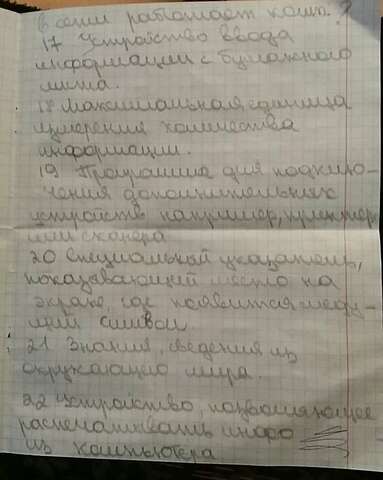 в сети работает комп.?
17 Устройство ввода
информации с бумажного
листа.
18 Максимальная единица
измерения количества
информации.
19 Программа для подклю-
чения дополнительных
устройств например, принтер
или сканера
20 Специальный указатель,
показывающий место на
экране, где появится следу-
щий символ
21 Знания, сведения из
окружающ мира.
22 Устройство, позволяющее
распечатывать инфо
из компьютера